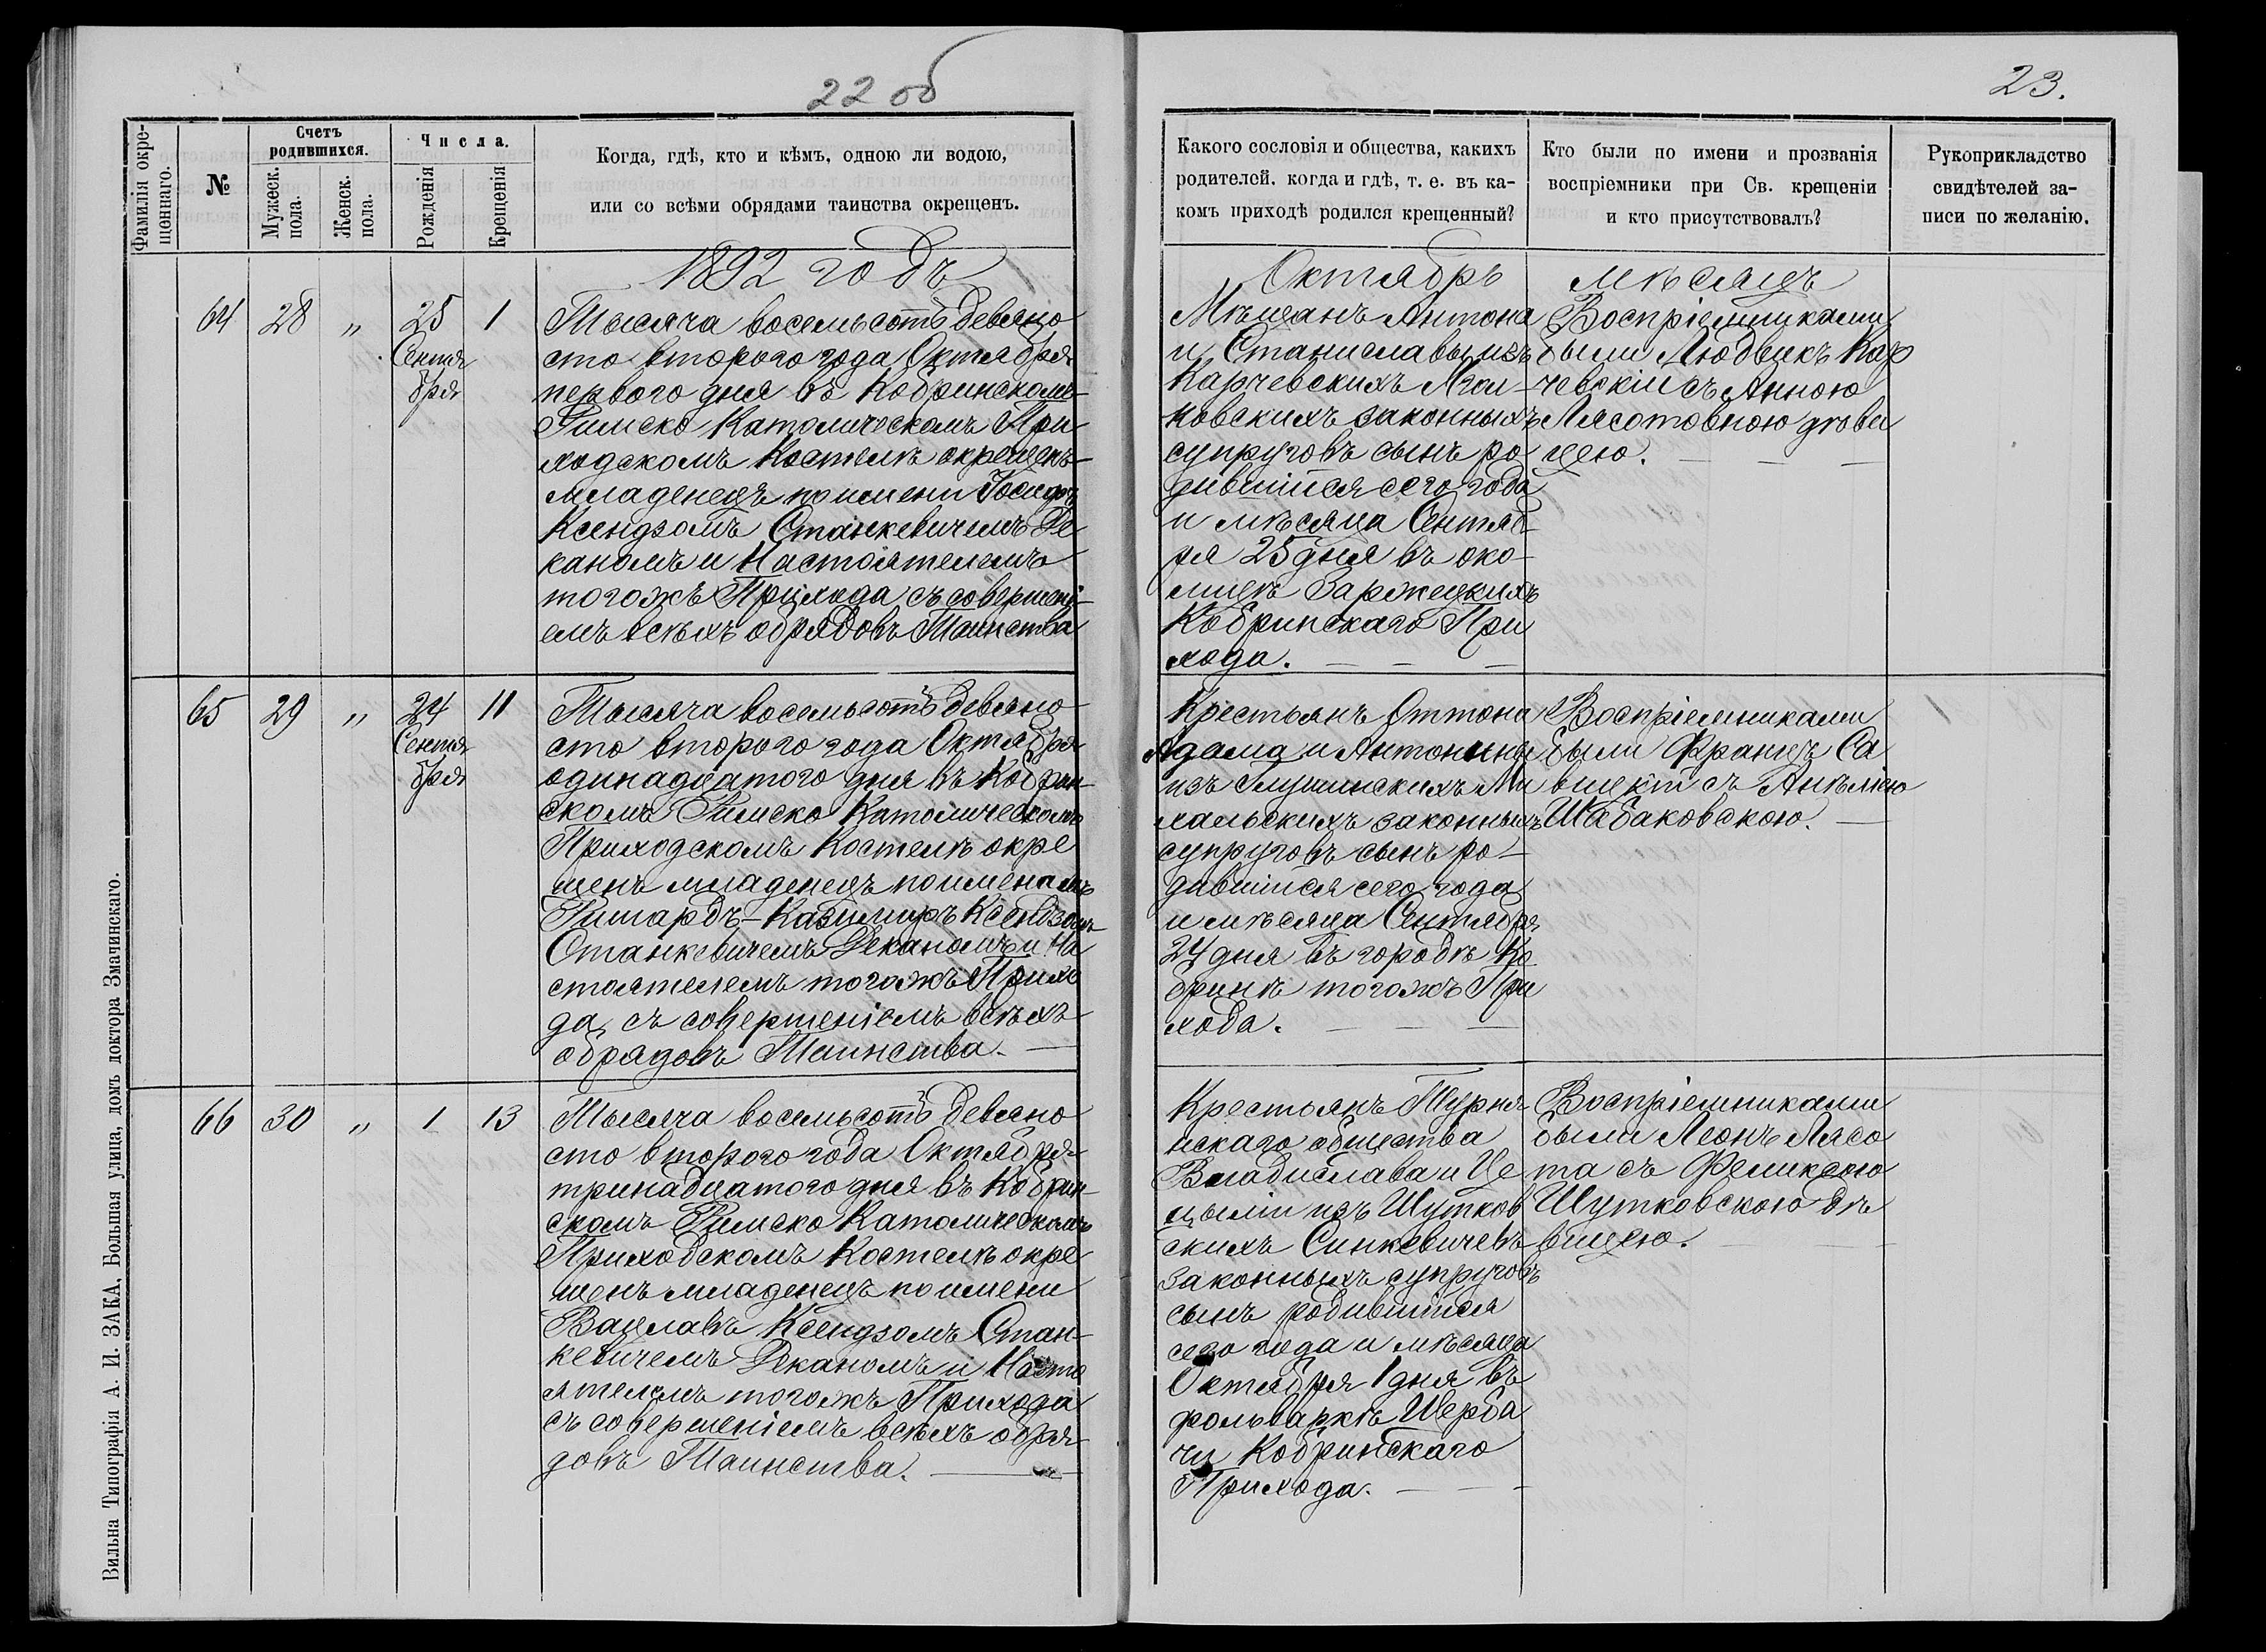 22 об
Фамилія окре-
щеннаго.
№
Счетъ
родившихся.
Мужеск.
пола.
Женск.
пола.
Числа.
Рожденія
Крещенія
Когда, гдѣ, кто и кѣмъ, одною ли водою,
или со всѣми обрядами таинства окрещенъ.
1892 годъ
64 28 „ 25 1
Сентя
бря
Тысяча восемьсотъ девяно
сто втораго года Октября
перваго дня въ Кобринскомъ
Римско Католическомъ При
ходскомъ Костелѣ окрещенъ
младенецъ по имени Іосифъ
Ксендзомъ Станкевичемъ Де
каномъ и Настоятелемъ
тогожъ Прихода съ совершені
емъ всѣхъ обрядовъ Таинства
65 29 „ 24 11
Сентя
бря
Тысяча восемьсотъ девяно
сто втораго года Октября
одинадцатого дня въ Кобрин
скомъ Римско Католическомъ
Приходскомъ Костелѣ окре
щенъ младенецъ по именамъ
Ришардъ-Казимиръ Ксендзомъ
Станкевичемъ Деканомъ и На
стоятелемъ тогожъ Прихо
да, съ совершеніемъ всѣхъ
обрядовъ Таинства.
66 30 „ 1 13
Тысяча восемьсотъ девяно
сто втораго года Октября
тринадцатого дня въ Кобрин
скомъ Римско Католическомъ
Приходскомъ Костелѣ окре
щенъ младенецъ по имени
Вацлавъ Ксендзомъ Стан-
кевичемъ Деканомъ и Насто
ятелемъ тогожъ Прихода
съ совершеніемъ всѣхъ обря
довъ Таинства.
Вильна Типографія А. И. ЗАКА, Большая улица, домъ доктора Змачинскаго.
23.
Какого сословія и общества, какихъ
родителей, когда и гдѣ, т. е. въ ка-
комъ приходѣ родился крещенный?
Кто были по имени и прозванія
воспріемники при Св. крещеніи
и кто присутствовалъ?
Рукоприкладство
свидѣтелей за-
писи по желанію.
Октябрь мѣсяцъ
Мѣщанъ Антона
и Станиславы изъ
Карчевскихъ
новскихъ законныхъ
супруговъ сынъ ро
дившійся сего года
и мѣсяца Сентяб
ря 25 дня въ око-
лицѣ Заржецкихъ
Кобринскаго При
хода.
Воспріемниками
были Людвикъ Кар
чевскій съ Анною
Лясотовною
цею.
Крестьянъ Оттона
Адама и Антонины
изъ Глушинскихъ Ми
хальскихъ законныхъ
супруговъ сынъ ро-
дившійся сего года
и мѣсяца Сентября
24 дня въ городѣ Ко
бринѣ тогожъ При
хода.
Воспріемниками
были Францъ Са
вицкій съ Анѣлею
Шабаковскою.
Крестьянъ Турня-
нскаго общества
Владислава и Це
циліи изъ Шутков
скихъ Синкевичевъ
законныхъ супруговъ
сынъ родившійся
сего года и мѣсяца
Октября 1 дня въ
фольваркѣ Щерба
чи Кобринскаго
Прихода.
Воспріемниками
были Леонъ Лясо
та съ Феликсою
Шутковскою дѣ
вицею.